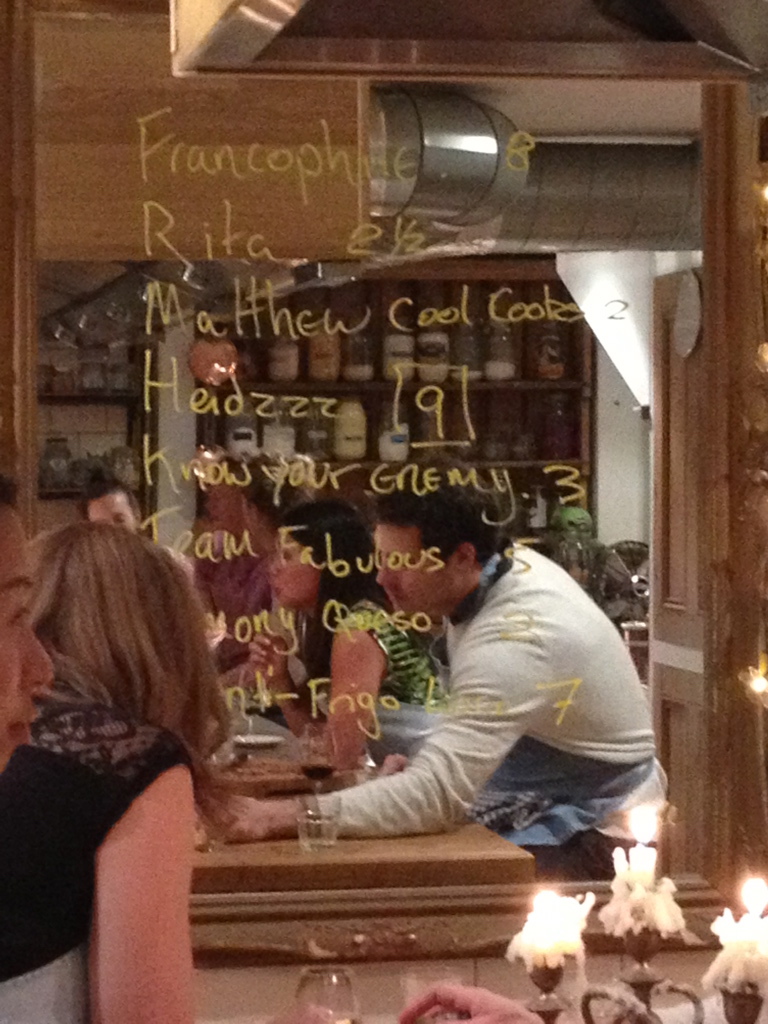 Francophile 8
Rita 2 1/2
Matthew Cool Cooks 2
Heidzzz [9]
Know your Enemy. 3
Team Fabulous 5
Queso 2
Frigo 7